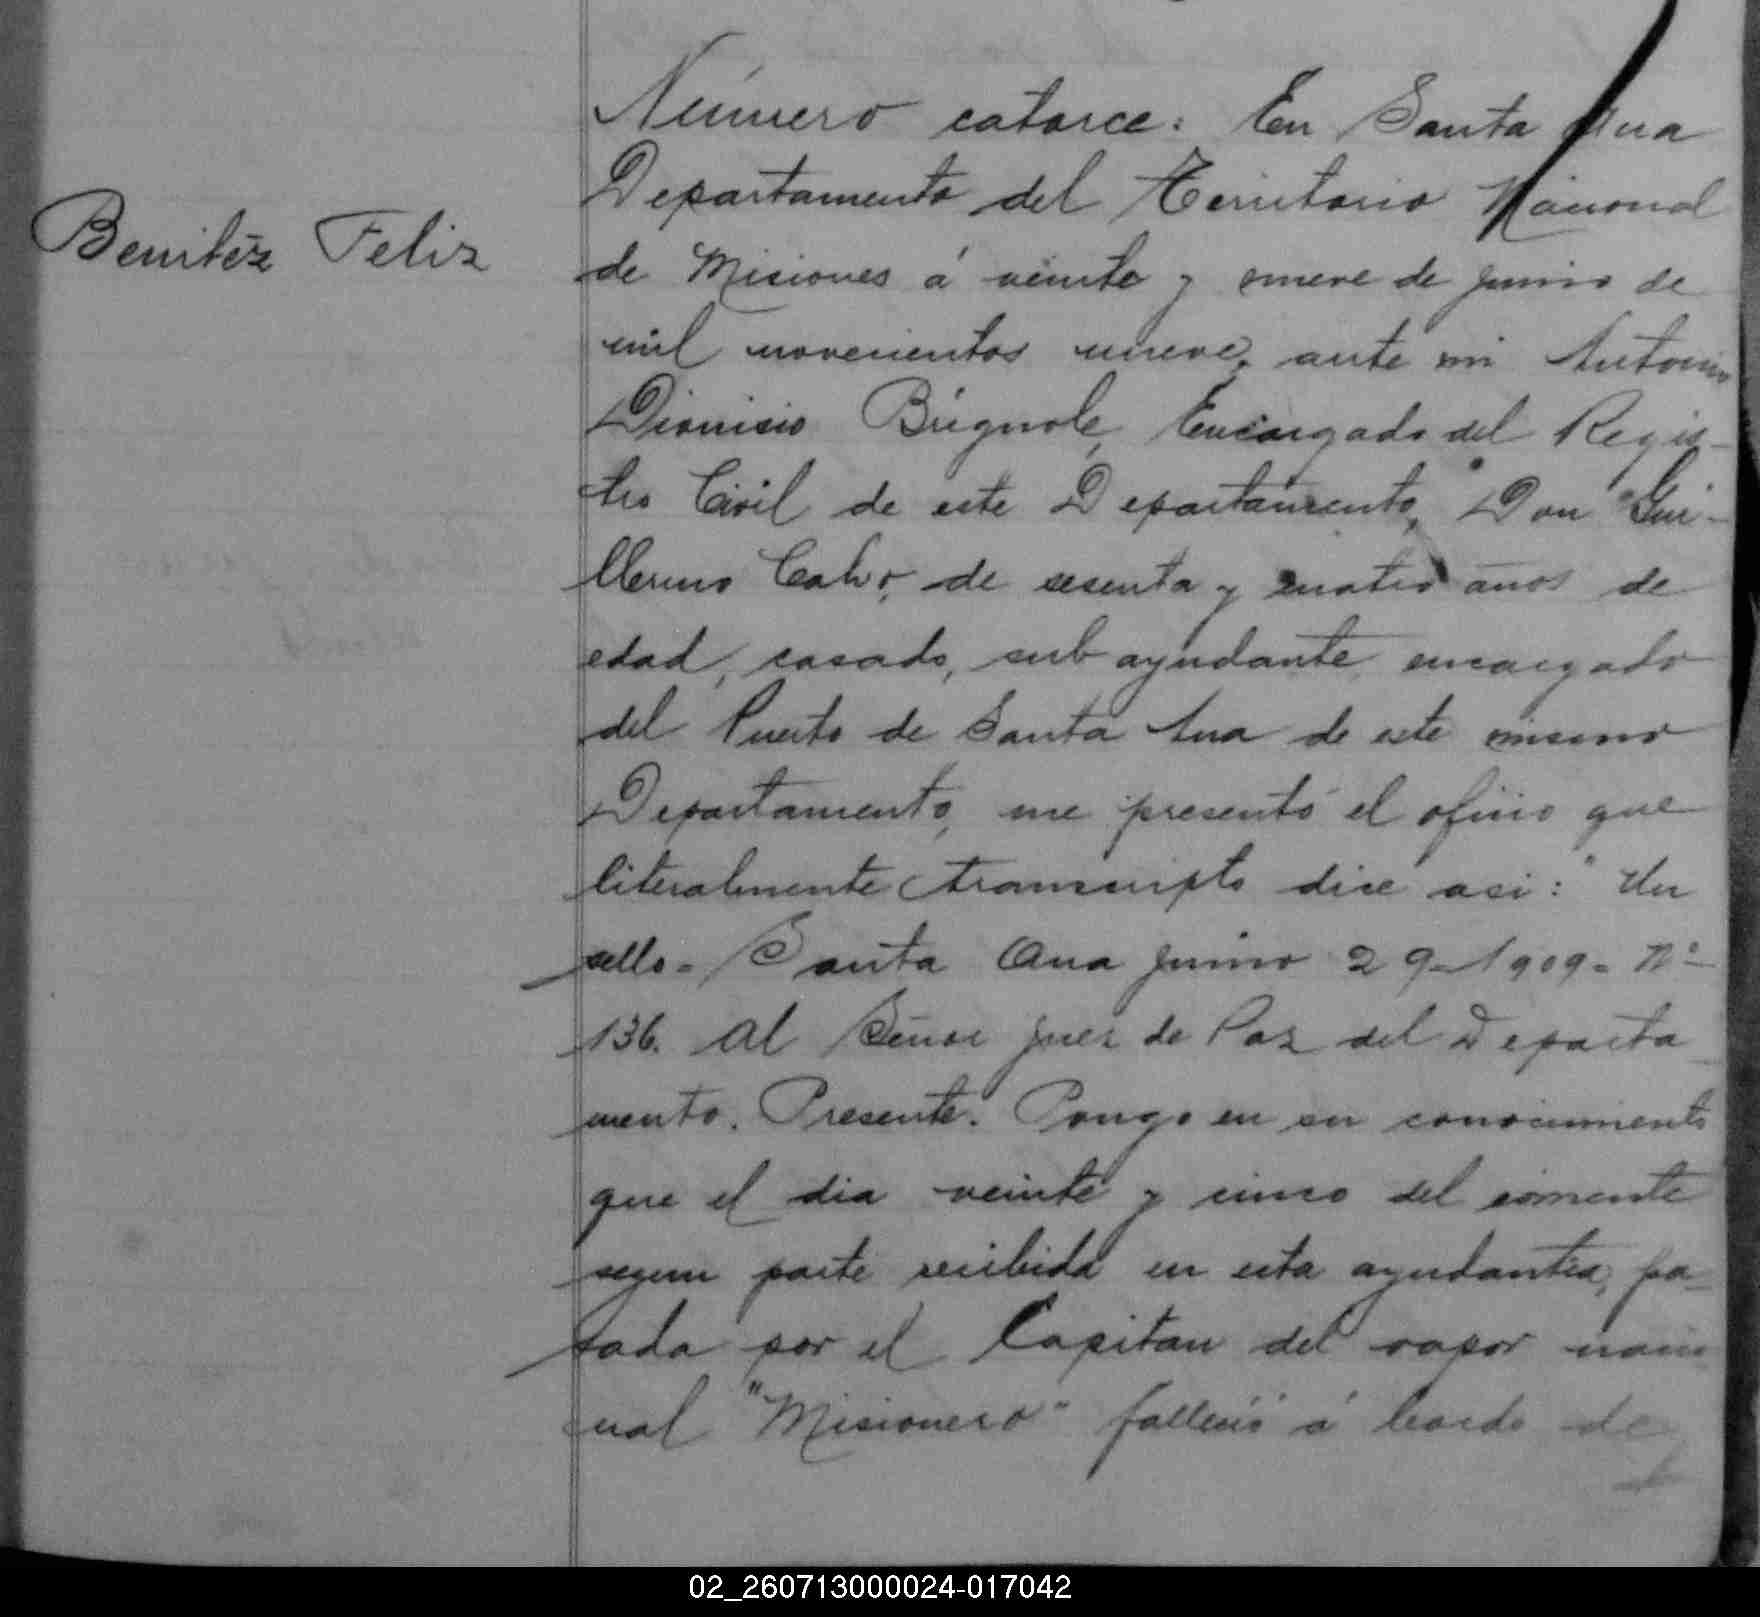 Benitéz Feliz
Número catorce: En Santa Ana
Departamento del Territorio Nacional
de Misiones á veinte y nueve de junio de
mil novecientos nueve, ante mi Antonio
Dionisio Brignole, Encargado del Regis-
tro Civil de este Departamento, Don Gui-
llermo Calvo, de sesenta y cuatro años de
edad, casado, sub ayudante encargado
del Puerto de Santa Ana de este mismo
Departamento, me presentó el oficio que
literalmente transcripto dice asi: "Un
sello = Santa Ana junio 29-1909= Nº
136. Al Señor Juez de Paz del Departa
mento. Presente. Pongo en su conocimiento
que el dia veinte y cinco del corriente
segun parte recibida en esta ayudantía, pa-
sada por el Capitan del vapor nacio
nal "Misionero" falleció á bordo de
02_260713000024-017042